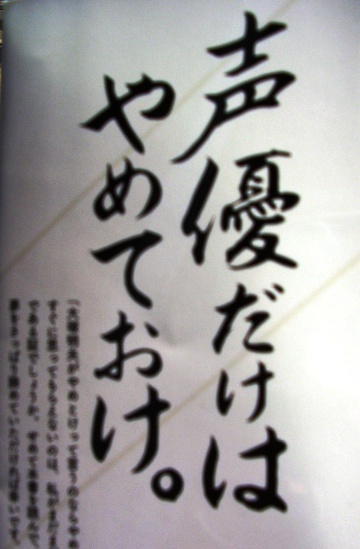 声優だけは
やめておけ。
「大塚明夫がやめとけって言うのならやめ
すぐに思ってもらえないのは、私がまだま
である証でしょうか。せめて本書を読んで、
夢をさっぱり諦めていただければ幸いです。